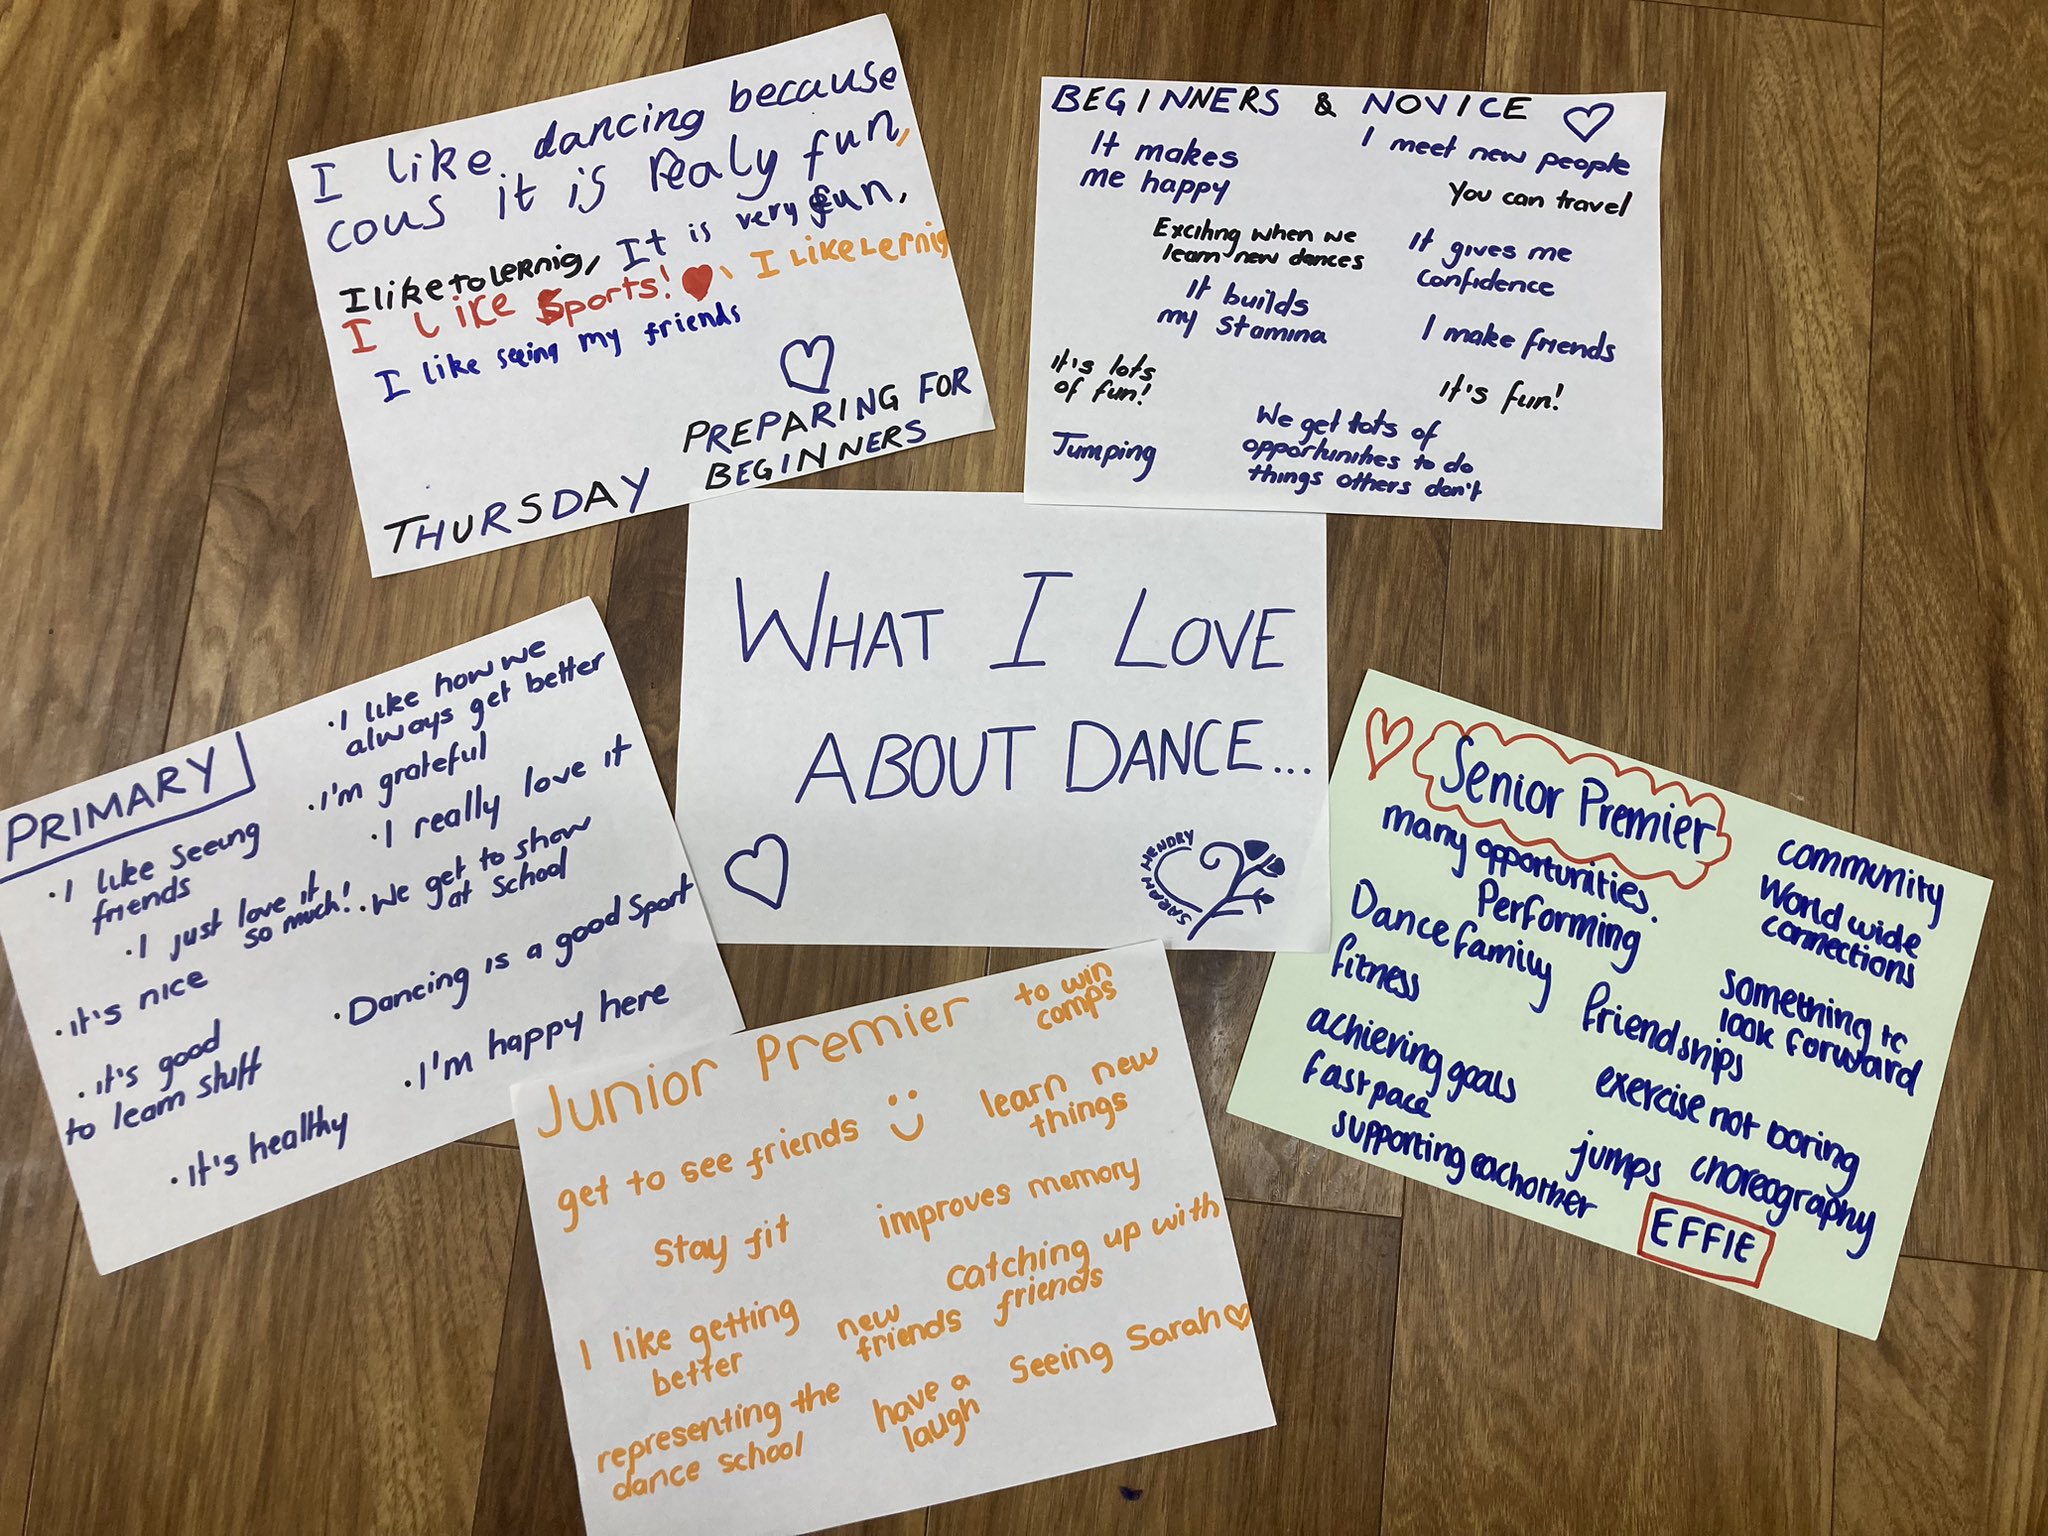 I like dancing because
cous it is realy fun,
I like to lernig, It is very fun,
I like Sports! I like lernig
I like seeing my friends
PREPARING FOR
BEGINNERS
THURSDAY
BEGINNERS & NOVICE
It makes
me happy
I meet new people
You can travel
Exciting when we
learn new dances
It gives me
confidence
It builds
my stamina
I make friends
It's lots
of fun!
It's fun!
Jumping
We get lots of
opportunities to do
things others don't
WHAT I LOVE
ABOUT DANCE...
SARAH HENDRY
PRIMARY
· I like how we
always get better
· I'm grateful
· I really love it
· I like seeing
friends
· I just love it
so much!
· We get to show
at school
· it's nice
· Dancing is a good Sport
· it's good
to learn stuff
· I'm happy here
· it's healthy
Junior Premier
to win
comps
get to see friends
learn new
things
stay fit
improves memory
catching up with
friends
I like getting
better
new
friends
seeing Sarah
representing the
dance school
have a
laugh
Senior Premier
many opportunities.
community
Performing
World wide
connections
Dance family
fitness
something to
look forward
friendships
achieving goals
fast pace
exercise not boring
supporting eachother
jumps
choreography
EFFIE